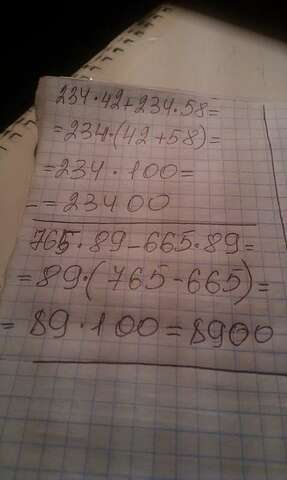 234·42+234·58=
=234·(42+58)=
=234·100=
=23400
765·89-665·89=
=89·(765-665)=
=89·100=8900